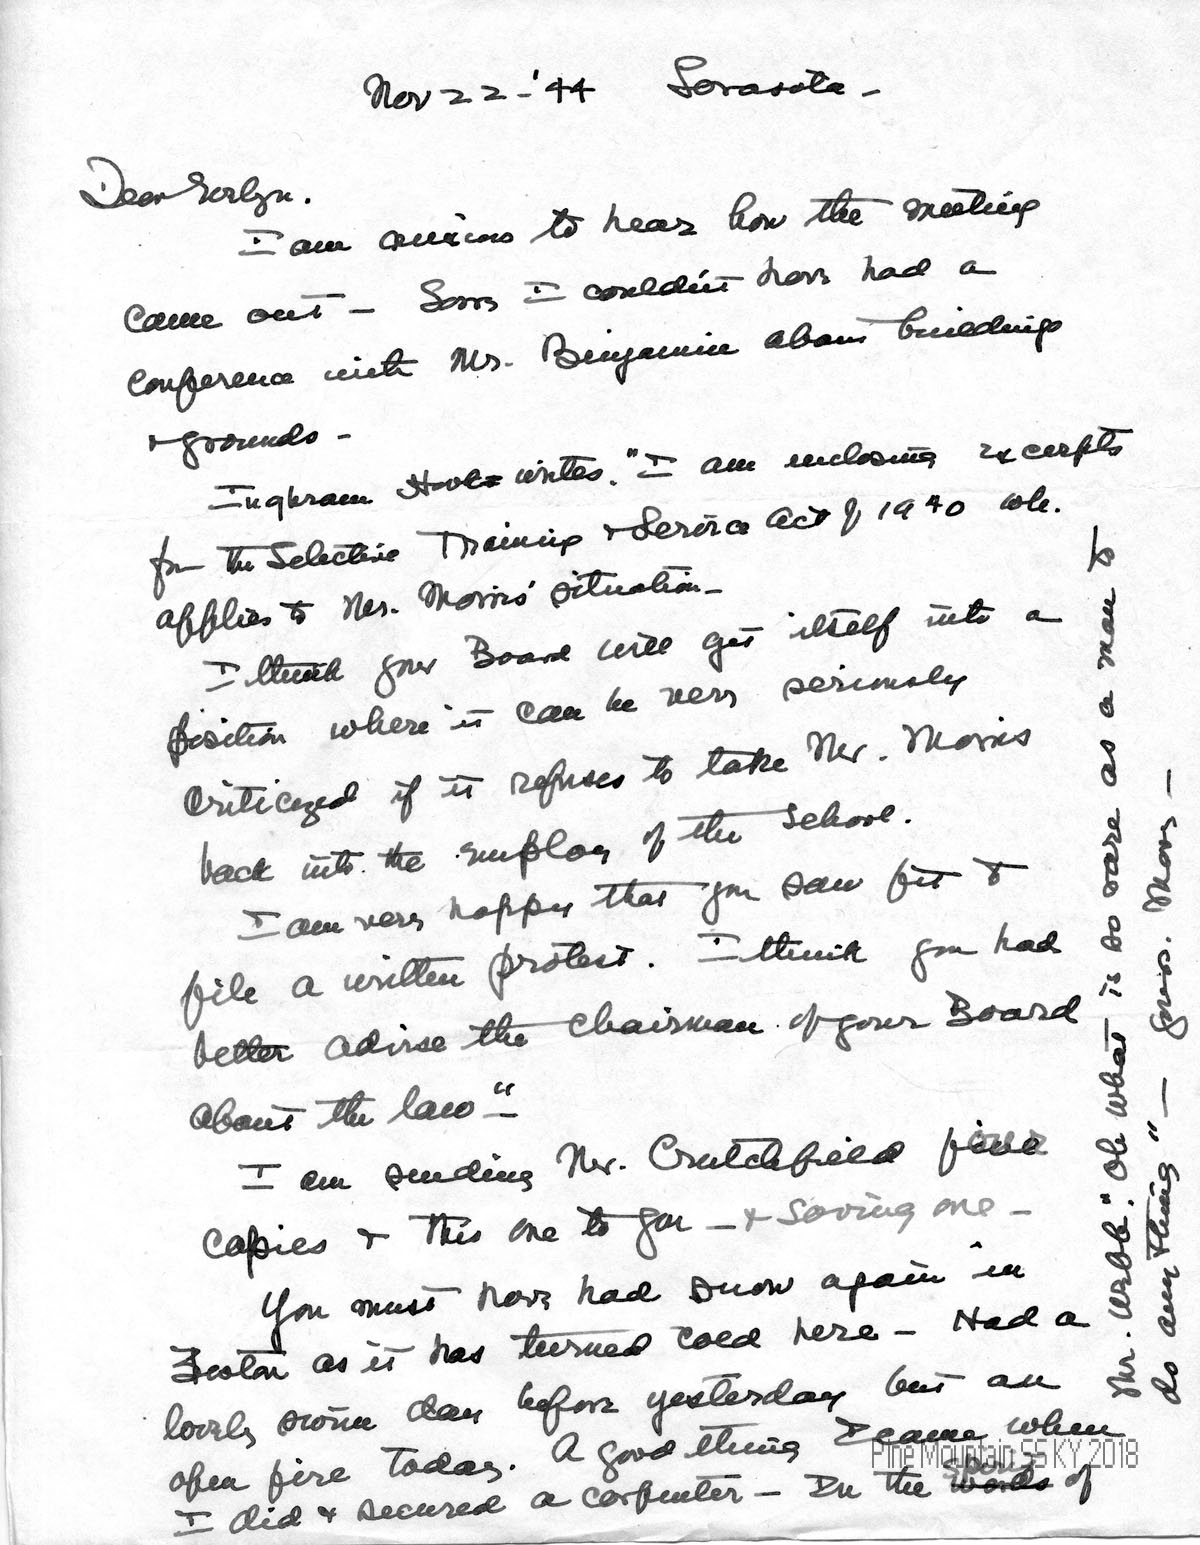 Nov 22 - '44 Sarasota -
Dear Evelyn.
I am anxious to hear how the meeting
came out - Sorry I couldn't have had a
conference with Mr. Benjamin about buildings
& grounds -
Inghram Hook writes. "I am enclosing excerpts
from the Selective Training & Service Act of 1940 wh.
applies to Mr. Morris' situation -
I think your Board will get itself into a
position where it can be very seriously
criticized if it refuses to take Mr. Morris
back into the employ of the School.
I am very happy that you saw fit to
file a written protest. I think you had
better advise the chairman of your Board
about the law" -
I am sending Mr. Crutchfield five
copies & this one to you - & saving one -
You must have had snow again in
as it has turned cold here - Had a
lovely swim day before yesterday but an
open fire today. A good thing I came when
I did & secured a carpenter - In the words of
Mr. Webb. "Oh what is so rare as a man to
do anything" - yours. Mary -
Pine Mountain SS KY 2018